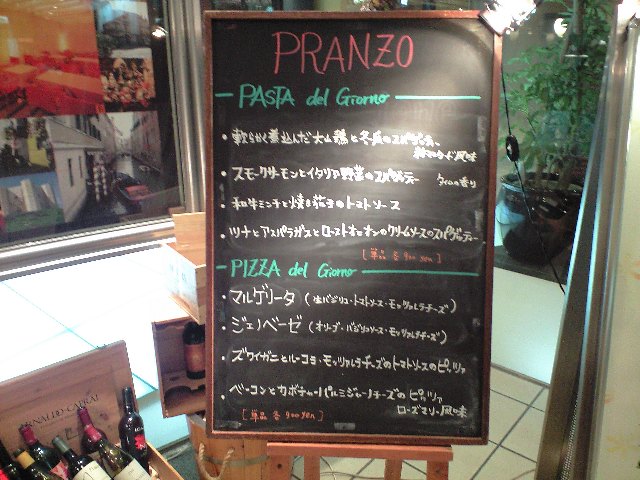 PRANZO
PASTA del Giorno
・軟らかく煮込んだ大山鶏と冬瓜のスパゲッティ
粒マスタード風味
・スモークサーモンとイタリア野菜のスパゲッティー タイムの香り
・和牛ミンチと焼き茄子のトマトソース
・ツナとアスパラガスとローストオニオンのクリームソースのスパゲッティー
[単品 各 900 yen]
PIZZA del Giorno
・マルゲリータ (生バジリコ・トマトソース・モッツァレラチーズ)
・ジェノベーゼ (オリーブ・バジリコソース・モッツァレラチーズ)
・ズワイガニとルーコラ・モッツァレラチーズのトマトソースのピッツァ
・ベーコンとカボチャ・パルミジャーノチーズのピッツァ
ローズマリー風味
[単品 各 900 yen]